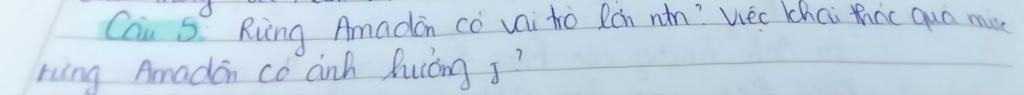 Câu 5: Rừng Amadôn có vai trò lớn ntn? Việc khai thác quá mức
rừng Amadôn có ảnh hưởng j?